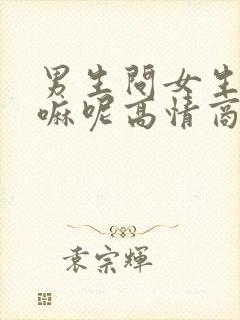 男生問女生
嘛呢高情商
袁宗輝